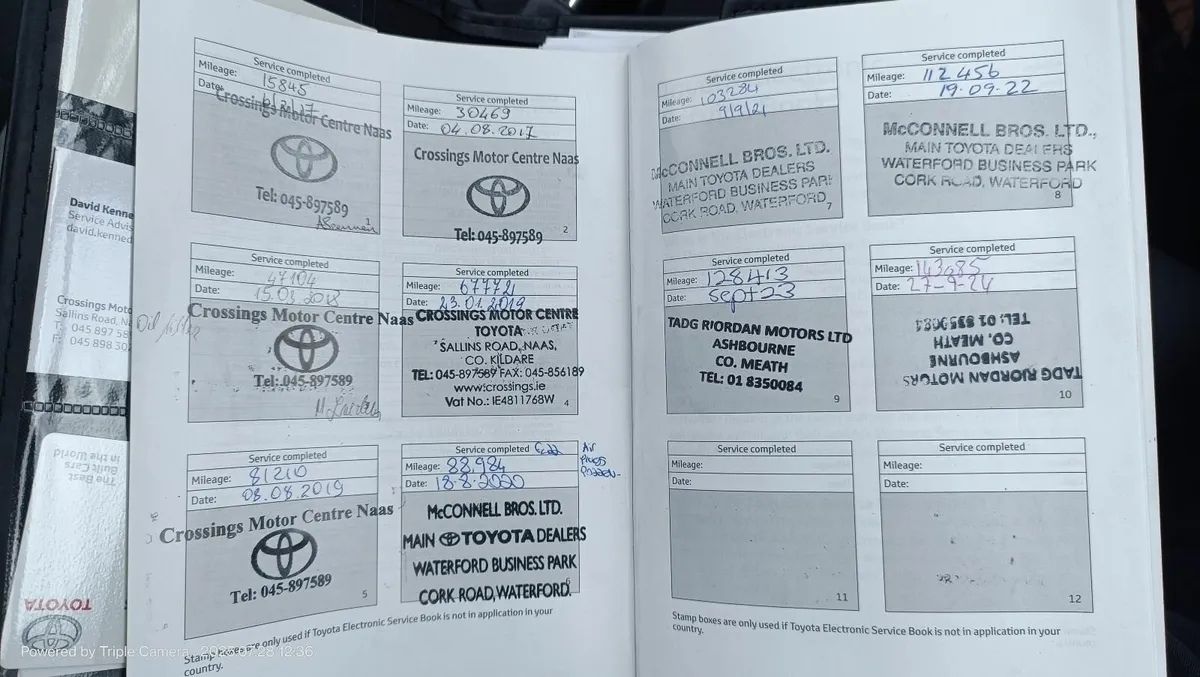 David Kenne
Service Advis
david.kenned
Crossings Moto
Sallins Road, Na
T: 045 897 58
F: 045 898 30
The Best
Built Cars
in the World
TOYOTA
Service completed
Mileage: 15845
Date:
Crossings Motor Centre Naas
Tel: 045-897589
1
Service completed
Mileage: 30469
Date: 04.08.2017
Crossings Motor Centre Naas
Tel: 045-897589
2
Service completed
Mileage: 47104
Date: 15.03.2018
Crossings Motor Centre Naas
Tel: 045-897589
Oil filter
Service completed
Mileage: 67772
Date: 23.01.2019
CROSSINGS MOTOR CENTRE
TOYOTA
SALLINS ROAD, NAAS,
CO. KILDARE
TEL: 045-897589 FAX: 045-856189
www.crossings.ie
Vat No.: IE4811768W
4
Service completed
Mileage: 81210
Date: 08.08.2019
Crossings Motor Centre Naas
Tel: 045-897589
5
Service completed
Mileage: 88.984
Date: 18-8-2020
Air
McCONNELL BROS. LTD.
MAIN TOYOTA DEALERS
WATERFORD BUSINESS PARK
CORK ROAD, WATERFORD.
6
Stamp boxes are only used if Toyota Electronic Service Book is not in application in your
country.
Service completed
Mileage: 103284
Date: 9/9/21
McCONNELL BROS. LTD.
MAIN TOYOTA DEALERS
WATERFORD BUSINESS PARK
CORK ROAD, WATERFORD,
7
Service completed
Mileage: 112 456
Date: 19.09.22
McCONNELL BROS. LTD.,
MAIN TOYOTA DEALERS
WATERFORD BUSINESS PARK
CORK ROAD, WATERFORD
8
Service completed
Mileage: 128413
Date: Sept 23
TADG RIORDAN MOTORS LTD
ASHBOURNE
CO. MEATH
TEL: 01 8350084
9
Service completed
Mileage: 143,085
Date: 27-9-24
TADG RIORDAN MOTORS
ASHBOURNE
CO. MEATH
TEL: 01 8350084
10
Service completed
Mileage:
Date:
11
Service completed
Mileage:
Date:
12
Stamp boxes are only used if Toyota Electronic Service Book is not in application in your
country.
Powered by Triple Camera 2025-07-28 12:36